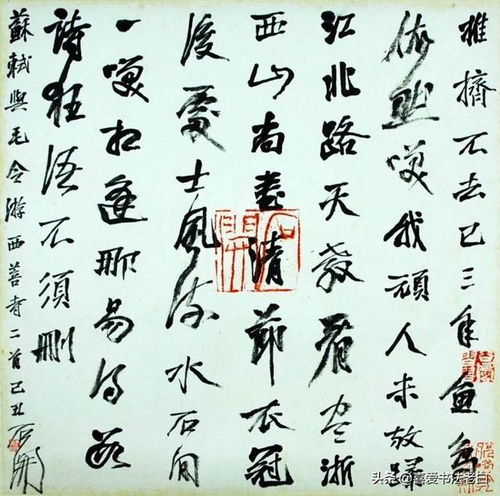 推擠不去已三年魚鳥
依然咲我頑人未放歸
江北路天教看盡浙
西山尚書清節衣冠
後處士風流水石間
一咲相逢那易得數
詩狂語不須刪
蘇軾與毛令游西菩寺二首己丑
石開
头条 @喜爱书法老白